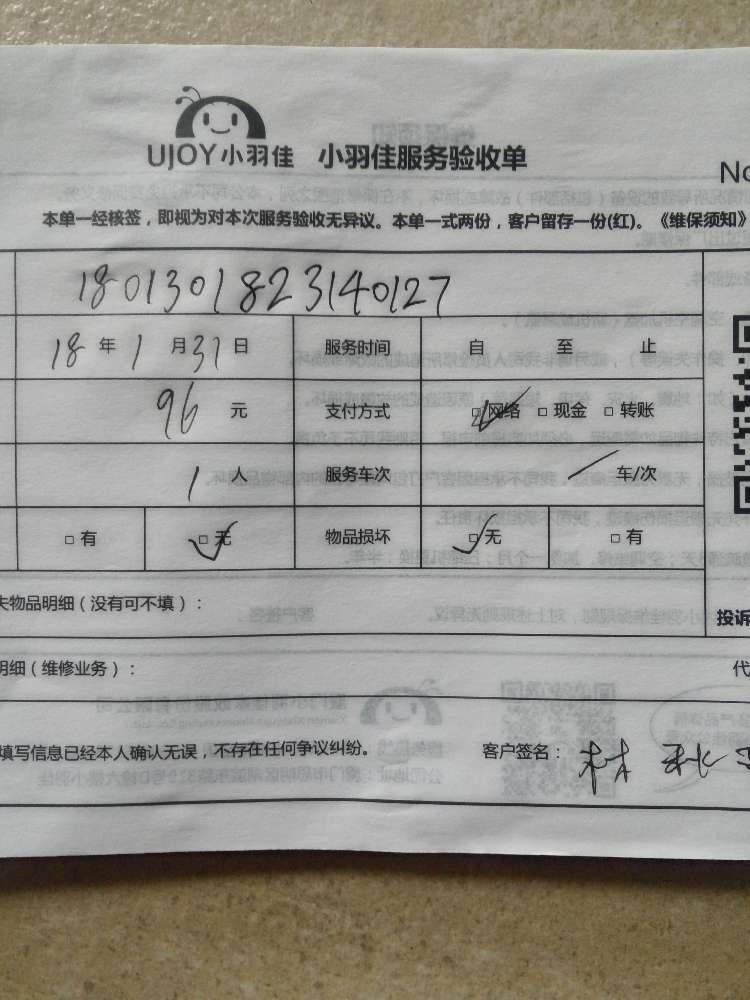 UJOY小羽佳 小羽佳服务验收单
No
本单一经核签，即视为对本次服务验收无异议。本单一式两份，客户留存一份(红)。《维保须知》
1801301823140127
18 年 1 月 31 日 服务时间 自 至 止
96 元 支付方式 □网络 □现金 □转账
1 人 服务车次 / 车/次
□有 □无 物品损坏 □无 □有
失物品明细（没有可不填）：
投诉
明细（维修业务）：
代
填写信息已经本人确认无误，不存在任何争议纠纷。 客户签名：林秋